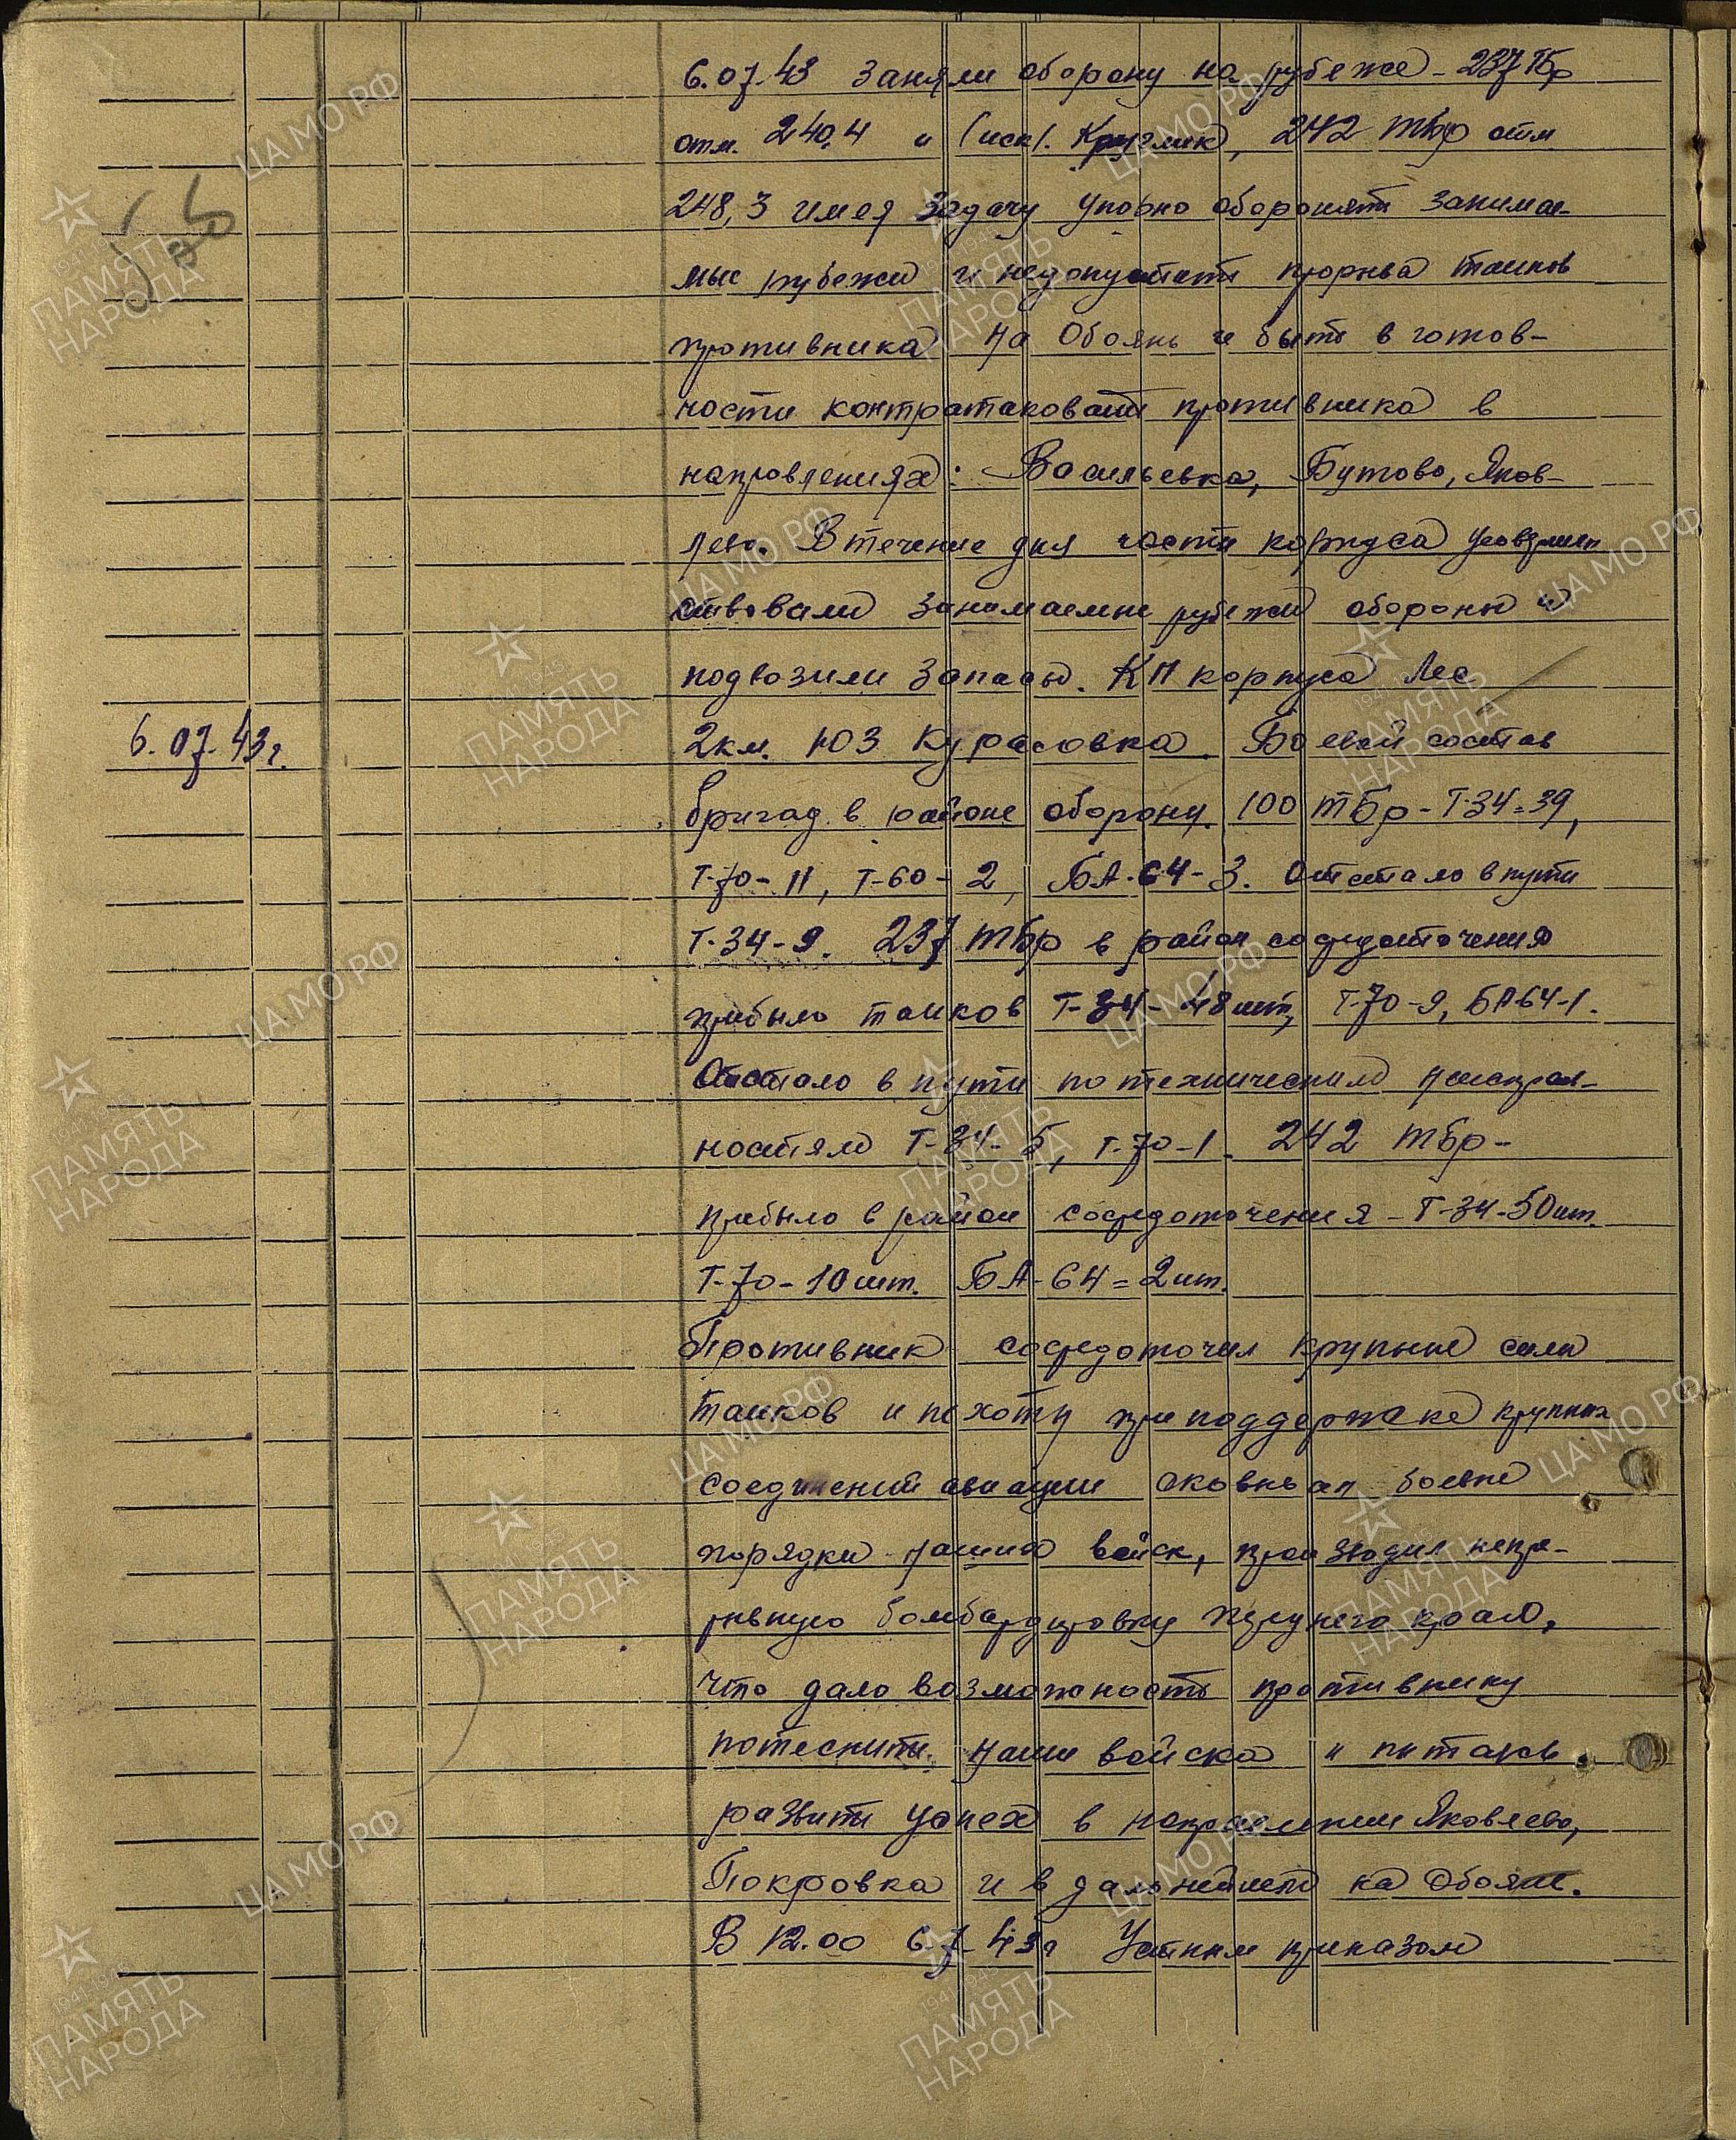 6.07.43 заняли оборону на рубеже - 237 Тбр
отм. 240,4 и (иск). Круглик, 242 тбр отм
248,3 имея задачу упорно оборонять занимае-
мые рубежи и недопустить прорыва танков
противника на Обоянь и быть в готов-
ности контратаковать противника в
направлениях: Васильевка, Бутово, Яков-
лево. В течение дня части корпуса усовершен
ствовали занимаемые рубежи обороны и
подвозили запасы. КП корпуса Лес
6.07.43г. 2км. ЮЗ Курасовка. Боевой состав
бригад в районе обороны. 100 тбр - Т-34=39,
Т-70-11, Т-60-2, БА-64-3. Отстало в пути
Т-34-9. 237 тбр в район сосредоточения
прибыло танков Т-34-48шт, Т-70-9, БА64-1.
Отстало в пути по техническим неисправ-
ностям Т-34-5, Т-70-1. 242 тбр-
прибыло в район сосредоточения - Т-34-50шт
Т-70-10шт. БА-64=2шт.
Противник сосредоточил крупные силы
танков и пехоты при поддержке крупных
соединений авиации сковывал боевые
порядки наших войск, производил непре-
рывную бомбардировку переднего края,
что дало возможность противнику
потеснить наши войска и пытаясь
развить успех в направлении Яковлево,
Покровка и в дальнейшем на Обоянь.
В 12.00 6.7.43г Устным приказом
ЦАМО РФ
1941-1945
ПАМЯТЬ
НАРОДА